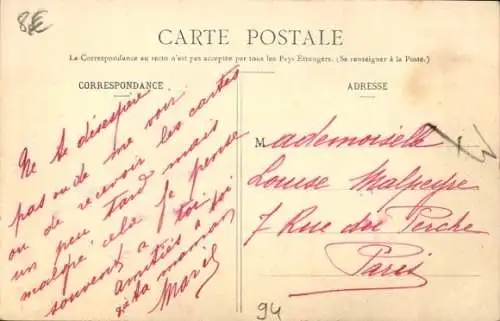 8€
CARTE POSTALE
La Correspondance au recto n'est pas acceptée par tous les Pays Étrangers. (Se renseigner à la Poste.)
CORRESPONDANCE
Ne te désespère
pas ou de me voir
ou de recevoir les cartes
un peu tard mais
malgré cela je pense
souvent à toi
amitiés à toi
& à ta maman
Marie
ADRESSE
Mademoiselle
Louise Malpeyre
7 Rue du Perche
Paris
94